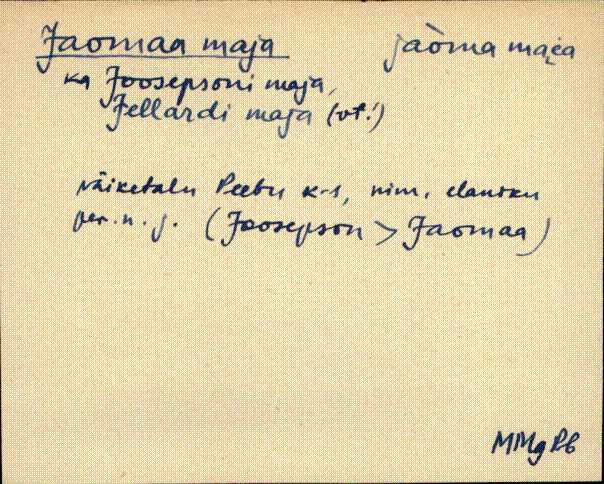 Jaomaa maja jaòma maea
ka Joosepsoni maja,
Jellardi maja (vt.!)
väiketalu Peetri k-s, nim. elaniku
per. n. j. (Joosepson > Jaomaa)
MMg Rb